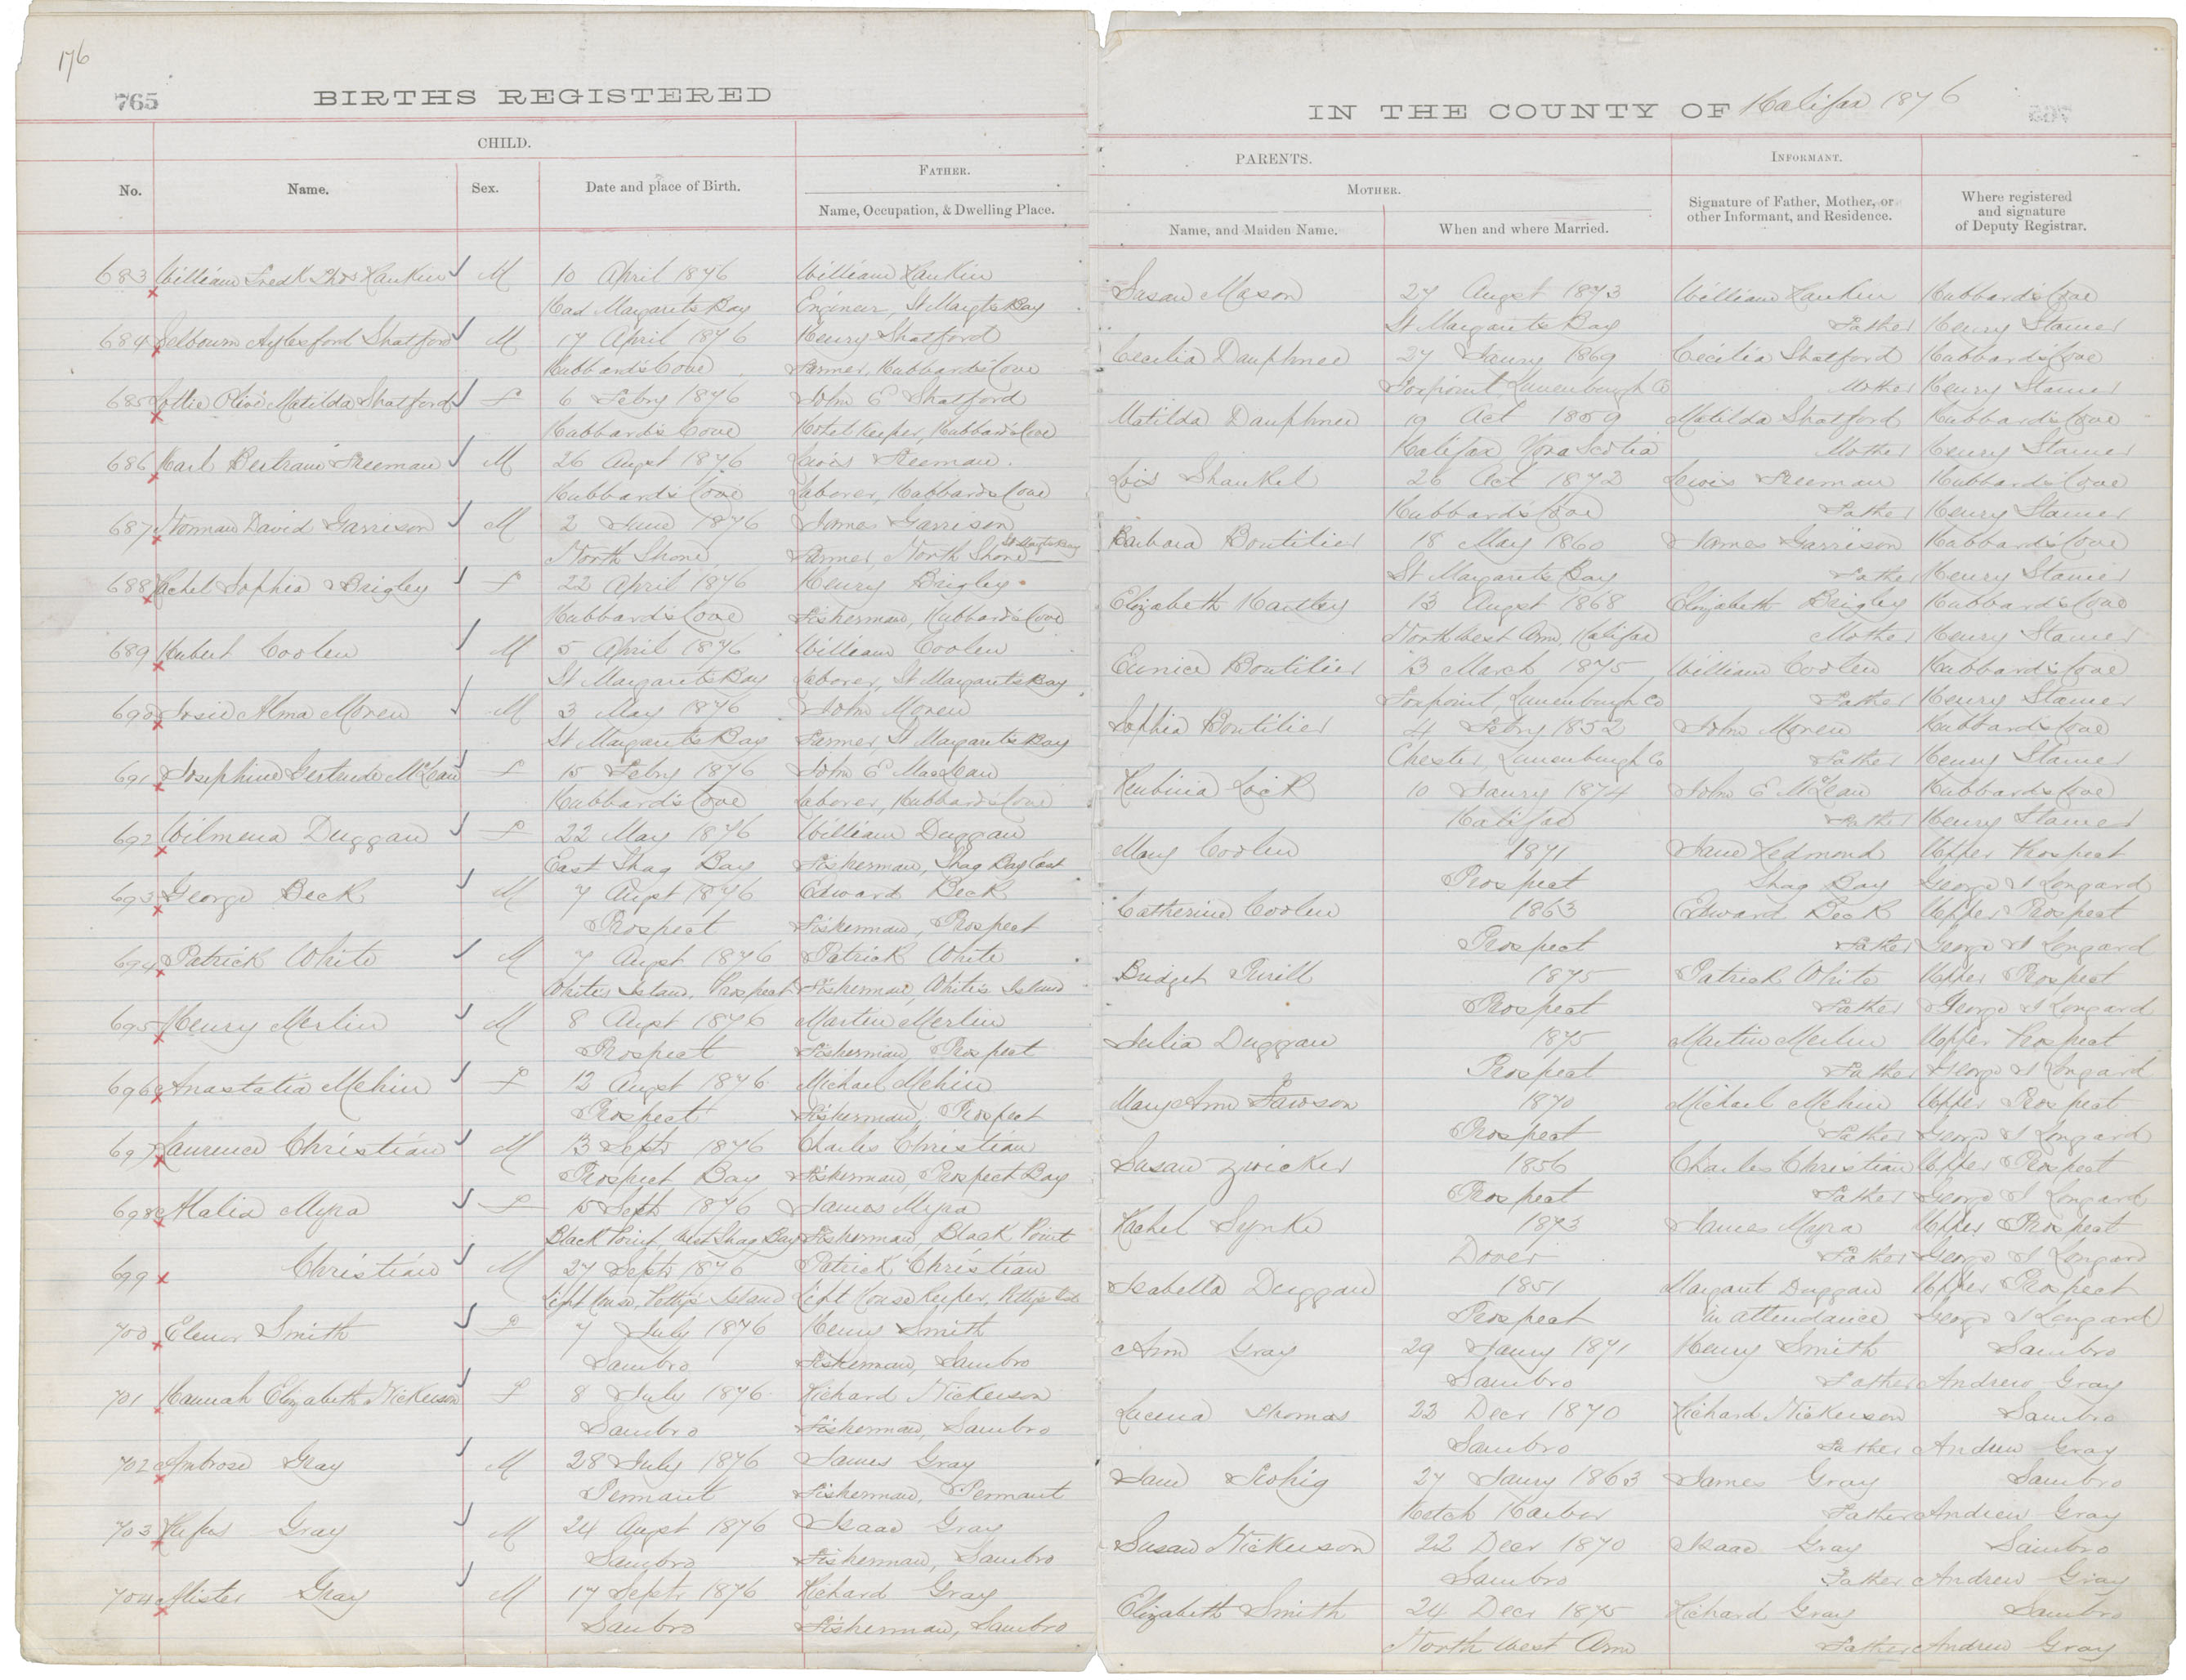 176
765
BIRTHS REGISTERED
IN THE COUNTY OF Halifax 1876
CHILD.
PARENTS.
INFORMANT.
No.
Name.
Sex.
Date and place of Birth.
FATHER.
Name, Occupation, & Dwelling Place.
MOTHER.
Name, and Maiden Name.
When and where Married.
Signature of Father, Mother, or
other Informant, and Residence.
Where registered
and signature
of Deputy Registrar.
683 William Fredk Thos Rankin M 10 April 1876 William Rankin Susan Mason 27 Augst 1873 William Rankin Hubbard's Cove
Head Margarets Bay Engineer, St Margts Bay St Margarets Bay Father Henry Stamer
684 Selbourn Aylesford Shatford M 17 April 1876 Henry Shatford Cecilia Dauphnee 27 Janry 1869 Cecilia Shatford Hubbards Cove
Hubbards Cove Farmer, Hubbards Cove Foxpoint, Lunenburgh Co Mother Henry Stamer
685 Lottie Olive Matilda Shatford F 6 Febry 1876 John E Shatford Matilda Dauphnee 19 Oct 1859 Matilda Shatford Hubbards Cove
Hubbards Cove Hotel Keeper, Hubbards Cove Halifax Nova Scotia Mother Henry Stamer
686 Karl Bertram Freeman M 26 Augst 1876 Lewis Freeman Lois Shankel 26 Oct 1872 Lewis Freeman Hubbards Cove
Hubbards Cove Laborer, Hubbards Cove Hubbards Cove Father Henry Stamer
687 Norman David Garrison M 2 June 1876 James Garrison Barbara Boutilier 18 May 1860 James Garrison Hubbards Cove
North Shore Farmer, North Shore St Margts Bay St Margarets Bay Father Henry Stamer
688 Rachel Sophia Brigley F 22 April 1876 Henry Brigley Elizabeth Hartley 13 Augst 1868 Elizabeth Brigley Hubbards Cove
Hubbards Cove Fisherman, Hubbards Cove North West Arm, Halifax Mother Henry Stamer
689 Hubert Coolen M 5 April 1876 William Coolen Eunice Boutilier 13 March 1875 William Coolen Hubbards Cove
St Margarets Bay Laborer, St Margarets Bay Foxpoint, Lunenburgh Co Father Henry Stamer
690 Josie Alma Moren M 3 May 1876 John Moren Sophia Boutilier 4 Febry 1852 John Moren Hubbards Cove
St Margarets Bay Farmer, St Margarets Bay Chester, Lunenburgh Co Father Henry Stamer
691 Josephine Gertrude McLean F 15 Febry 1876 John E MacLean Reubina Lock 10 Janry 1874 John E McLean Hubbards Cove
Hubbards Cove Laborer, Hubbards Cove Halifax Father Henry Stamer
692 Wilmena Duggan F 22 May 1876 William Duggan Mary Coolen 1871 Jane Redmond Upper Prospect
East Shag Bay Fisherman, Shag Bay East Prospect Shag Bay George S Longard
693 George Beck M 7 Augst 1876 Edward Beck Catherine Coolen 1863 Edward Beck Upper Prospect
Prospect Fisherman, Prospect Prospect Father George S Longard
694 Patrick White M 7 Augst 1876 Patrick White Bridget 1875 Patrick White Upper Prospect
Whites Island, Prospect Fisherman, Whites Island Prospect Father George S Longard
695 Henry Merlin M 8 Augst 1876 Martin Merlin Julia Duggan 1875 Martin Merlin Upper Prospect
Prospect Fisherman, Prospect Prospect Father George S Longard
696 Anastatia Mehin F 12 Augst 1876 Michael Mehin Mary Ann Lawson 1870 Michael Mehin Upper Prospect
Prospect Fisherman, Prospect Prospect Father George S Longard
697 Laurence Christian M 13 Septr 1876 Charles Christian Susan Zwicker 1856 Charles Christian Upper Prospect
Prospect Bay Fisherman, Prospect Bay Prospect Father George S Longard
698 Malia Myra F 15 Septr 1876 James Myra Rachel 1873 James Myra Upper Prospect
Black Point, West Shag Bay Fisherman, Black Point Dover Father George S Longard
699 Christian M 27 Septr 1876 Patrick Christian Isabella Duggan 1851 Margaret Duggan Upper Prospect
Light House, Bettys Island Light House Keeper, Bettys Isld Prospect in attendance George S Longard
700 Elenor Smith F 7 July 1876 Henry Smith Ann Gray 29 Janry 1871 Henry Smith Sambro
Sambro Fisherman, Sambro Sambro Father Andrew Gray
701 Hannah Elizabeth Nickerson F 8 July 1876 Richard Nickerson Lucena Thomas 22 Decr 1870 Richard Nickerson Sambro
Sambro Fisherman, Sambro Sambro Father Andrew Gray
702 Ambrose Gray M 28 July 1876 James Gray Jane 27 Janry 1863 James Gray Sambro
Pennant Fisherman, Pennant Ketch Harbor Father Andrew Gray
703 Rufus Gray M 24 Augst 1876 Isaac Gray Susan Nickerson 22 Decr 1870 Isaac Gray Sambro
Sambro Fisherman, Sambro Sambro Father Andrew Gray
704 Mister Gray M 17 Septr 1876 Richard Gray Elizabeth Smith 24 Decr 1875 Richard Gray Sambro
Sambro Fisherman, Sambro North West Arm Father Andrew Gray